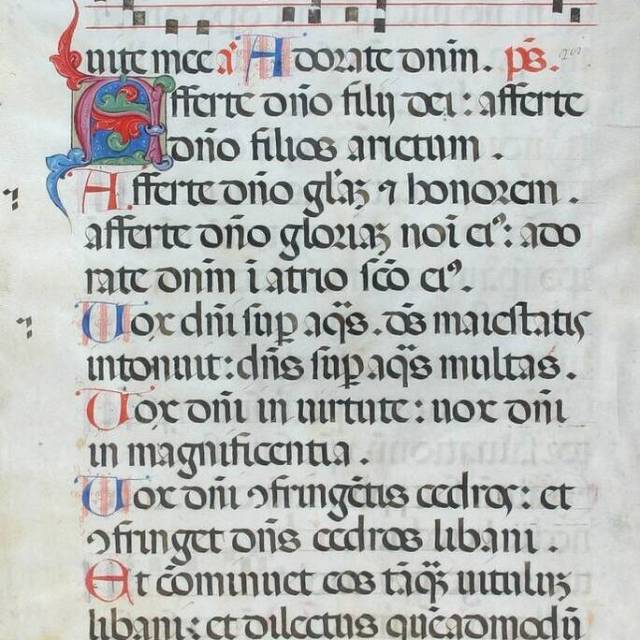 uite mee a Adorate dnm̄. ps̄.
Afferte dño filij dei: afferte
dño filios arietum.
Afferte dño gl'aꝫ ⁊ honorem.
afferte dño gloriaꝫ noī eiꝰ: ado
rate dnm̄ ī atrio sc̄o eiꝰ.
Uox dñi sup̄ aq̄s. ds̄ maiestatis
intonuit: dñs sup̄ aq̄s multas.
Uox dñi in uirtute: uox dñi
in magnificentia.
Uox dñi ꝯfringētis cedroꝝ: et
ꝯfringet dñs cedros libani.
Et cōminuet eos tāq̄ꝫ uituluꝫ
libani: et dilectus quēadmodū